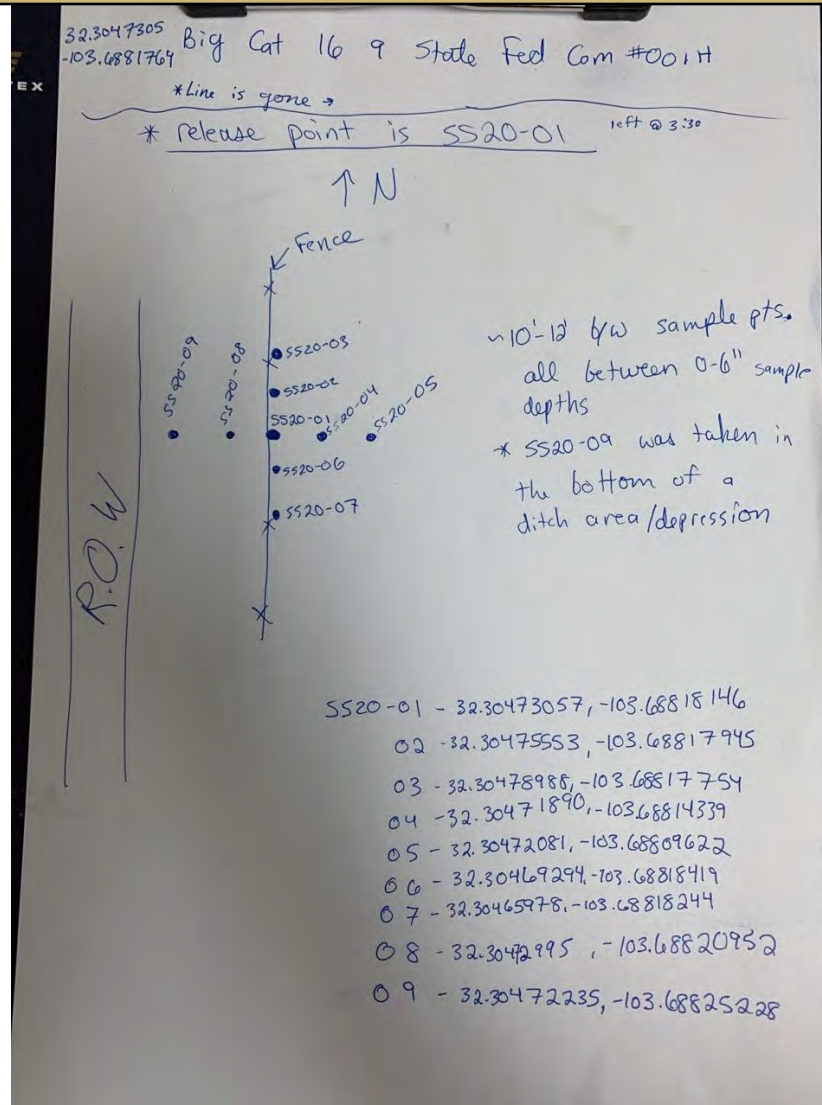 32.3047305
-103.6881764
Big Cat 16 9 State Fed Com #001H
EX
*Line is gone →
* release point is SS20-01
left @ 3:30
↑ N
Fence
SS20-09
SS20-08
SS20-03
SS20-02
SS20-01
SS20-04
SS20-05
SS20-06
SS20-07
R.O.W
~10'-12' b/w sample pts.
all between 0-6" sample
depths
* SS20-09 was taken in
the bottom of a
ditch area/depression
SS20-01 - 32.30473057, -103.68818146
02 - 32.30475553, -103.68817945
03 - 32.30478988, -103.68817754
04 - 32.30471890, -103.68814339
05 - 32.30472081, -103.68809622
06 - 32.30469294, -103.68818419
07 - 32.30465978, -103.68818244
08 - 32.30472995, -103.68820952
09 - 32.30472235, -103.68825228